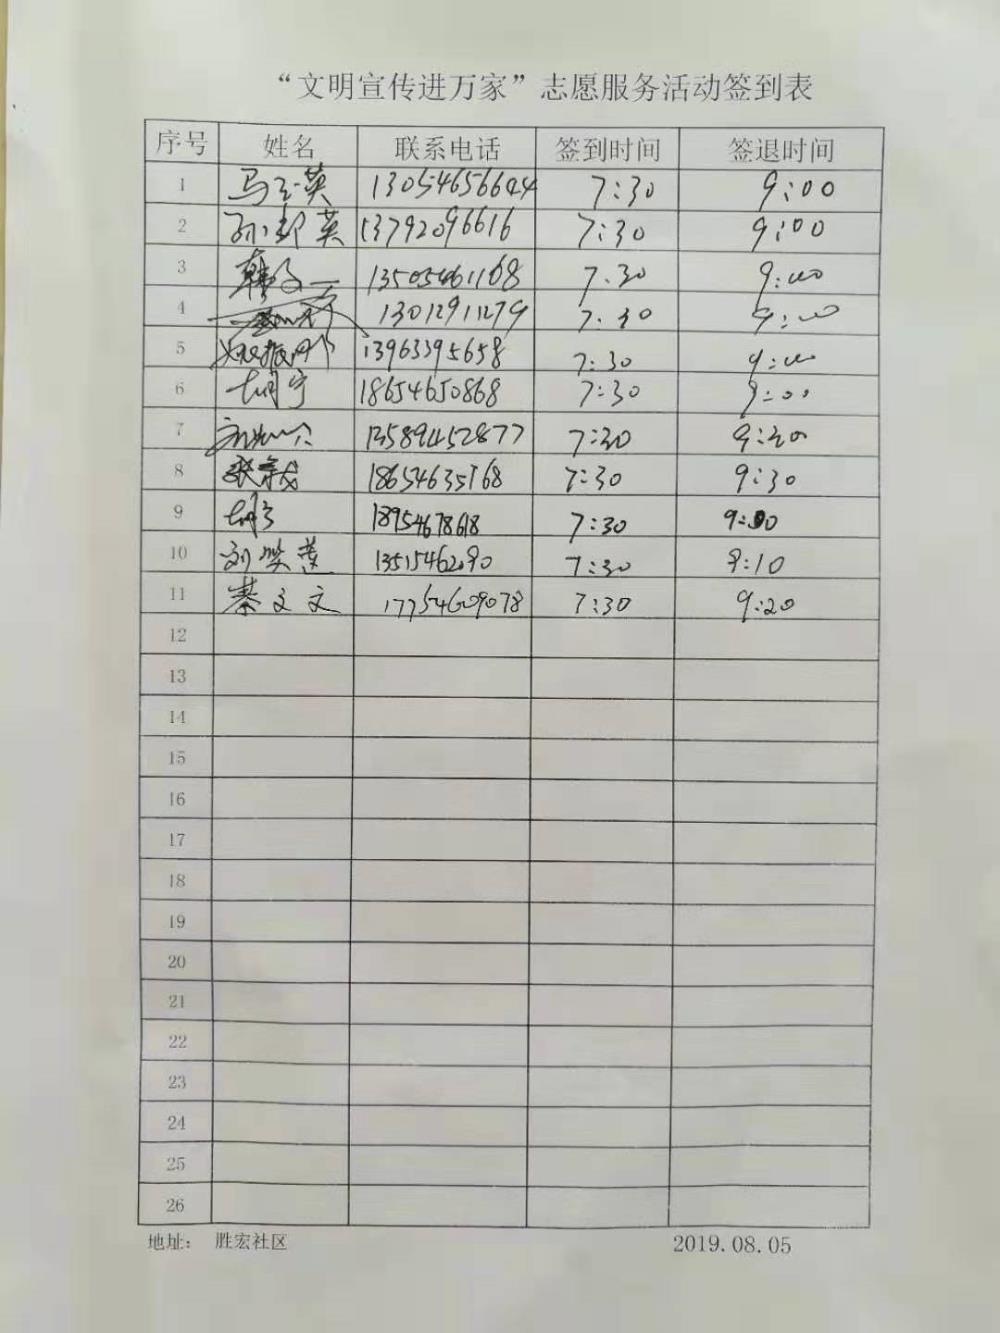 “文明宣传进万家”志愿服务活动签到表
序号 姓名 联系电话 签到时间 签退时间
1 马玉英 13054656644 7:30 9:00
2 孙彩英 13792096616 7:30 9:00
3 韩 13505461168 7.30 9:00
4 13012911279 7.30 9:00
5 13963395658 7:30 9:00
6 胡宁 18654650868 7:30 9:00
7 13589452877 7:30 9:30
8 18654635768 7:30 9:30
9 18954678618 7:30 9:30
10 刘 13515462090 7:30 9:10
11 綦文文 17754609078 7:30 9:20
12
13
14
15
16
17
18
19
20
21
22
23
24
25
26
地址: 胜宏社区 2019.08.05